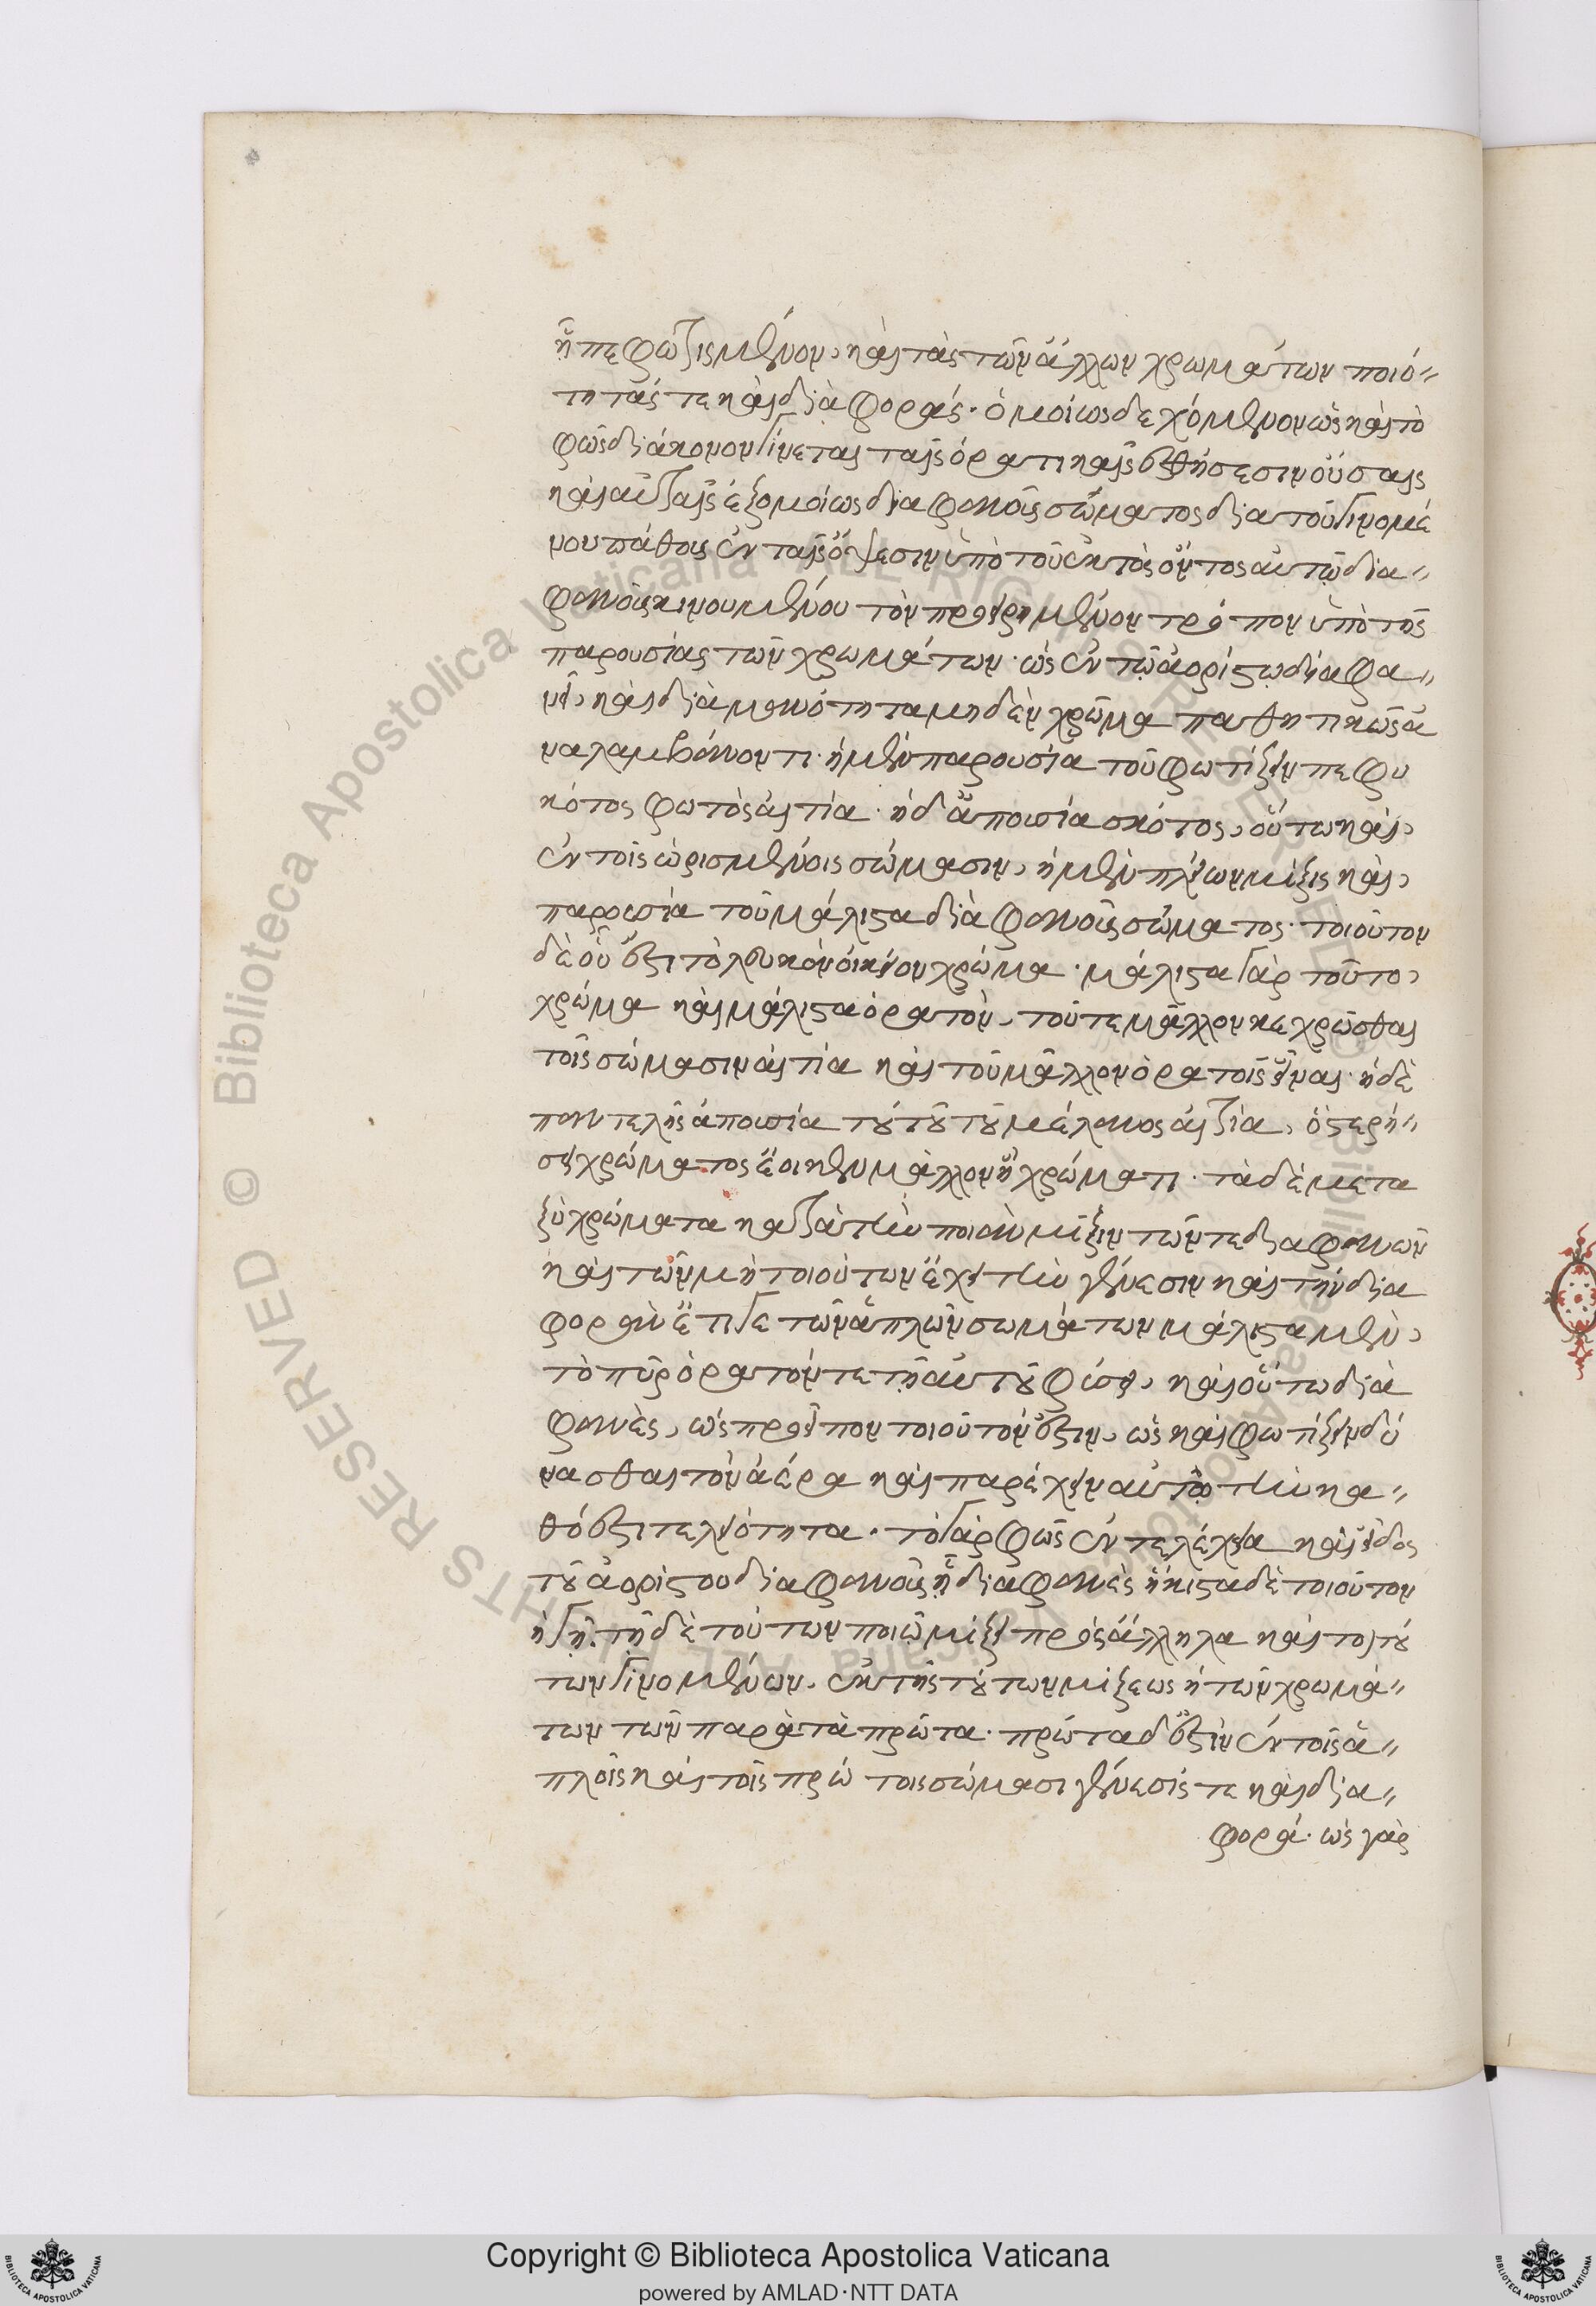 ᾗ πεφωτισμένον, καὶ τὰς τῶν ἄλλων χρωμάτων ποιό-
τητάς τε καὶ διαφοράς. ὁμοίως δεχόμενον ὡς καὶ τὸ
φῶς διάκονον γίνεται ταῖς ὁρατικαῖς αἰσθήσεσιν οὔσαις
καὶ αὐταῖς ἐξ ὁμοίως διαφανοῦς σώματος διὰ τοῦ γινομέ
νου πάθους ἐν ταῖς ὄψεσιν ὑπὸ τοῦ ἐκτὸς ὄντος αὐτῷ δια-
φανοῦς κινουμένου τὸν προειρημένον τρόπον ὑπὸ τῆς
παρουσίας τῶν χρωμάτων. ὡς ἐν τῷ ἀορίστῳ διαφα-
νεῖ, καὶ διὰ μανότητα μηδὲν χρῶμα παθητικῶς ἀ
ναλαμβάνοντι. ἡ μὲν παρουσία τοῦ φωτίζειν πεφυ
κότος φωτὸς αἰτία. ἡ δ' ἀπουσία σκότος, οὕτω καὶ
ἐν τοῖς ὡρισμένοις σώμασιν, ἡ μὲν πλείων μίξις καὶ
παρουσία τοῦ μάλιστα διαφανοῦς σώματος. τοιοῦτον
δὲ οὗ ἐστι τὸ λευκὸν οἰκεῖον χρῶμα. μάλιστα γὰρ τοῦτο
χρῶμα καὶ μάλιστα ὁρατὸν, τοῦ τε μᾶλλον κεχρῶσθαι
τοῖς σώμασιν αἰτία καὶ τοῦ μᾶλλον ὁρατοῖς εἶναι. ἡ δὲ
παντελὴς ἀπουσία τούτου τοῦ μέλανος αἰτία, ὃ στερή-
σει χρώματος ἔοικεν μᾶλλον ἢ χρώματι. τὰ δὲ μετα
ξὺ χρώματα κατὰ τὴν ποιὰν μίξιν τῶν τε διαφανῶν
καὶ τῶν μὴ τοιούτων ἔχει τὴν γένεσιν καὶ τὴν δια
φορὰν ἔτι γε τῶν ἁπλῶν σωμάτων μάλιστα μὲν
τὸ πῦρ ὁρατόν τε τῇ αὐτοῦ φύσει, καὶ οὕτω δια
φανὲς, ὡς προεῖπον τοιοῦτόν ἐστιν, ὡς καὶ φωτίζειν δύ
νασθαι τὸν ἀέρα καὶ παρέχειν αὐτῷ τὴν κα-
θό ἐστι τελειότητα. τὸ γὰρ φῶς ἐντελέχεια καὶ εἶδος
τοῦ ἀορίστου διαφανοῦς ᾗ διαφανὲς ἥκιστα δὲ τοιοῦτον
ἡ γῆ. τῇ δὲ τούτων ποιᾷ μίξει πρὸς ἄλληλα καὶ τού
των γινομένων. ἐκ τῆς τούτων μίξεως ἡ τῶν χρωμά-
των τῶν παρὰ τὰ πρῶτα. πρῶτα δ' ἐστὶν ἐν τοῖς ἁ-
πλοῖς καὶ τοῖς πρώτοις σώμασι γένεσίς τε καὶ δια-
φορά. ὡς γὰρ
Copyright © Biblioteca Apostolica Vaticana
powered by AMLAD·NTT DATA